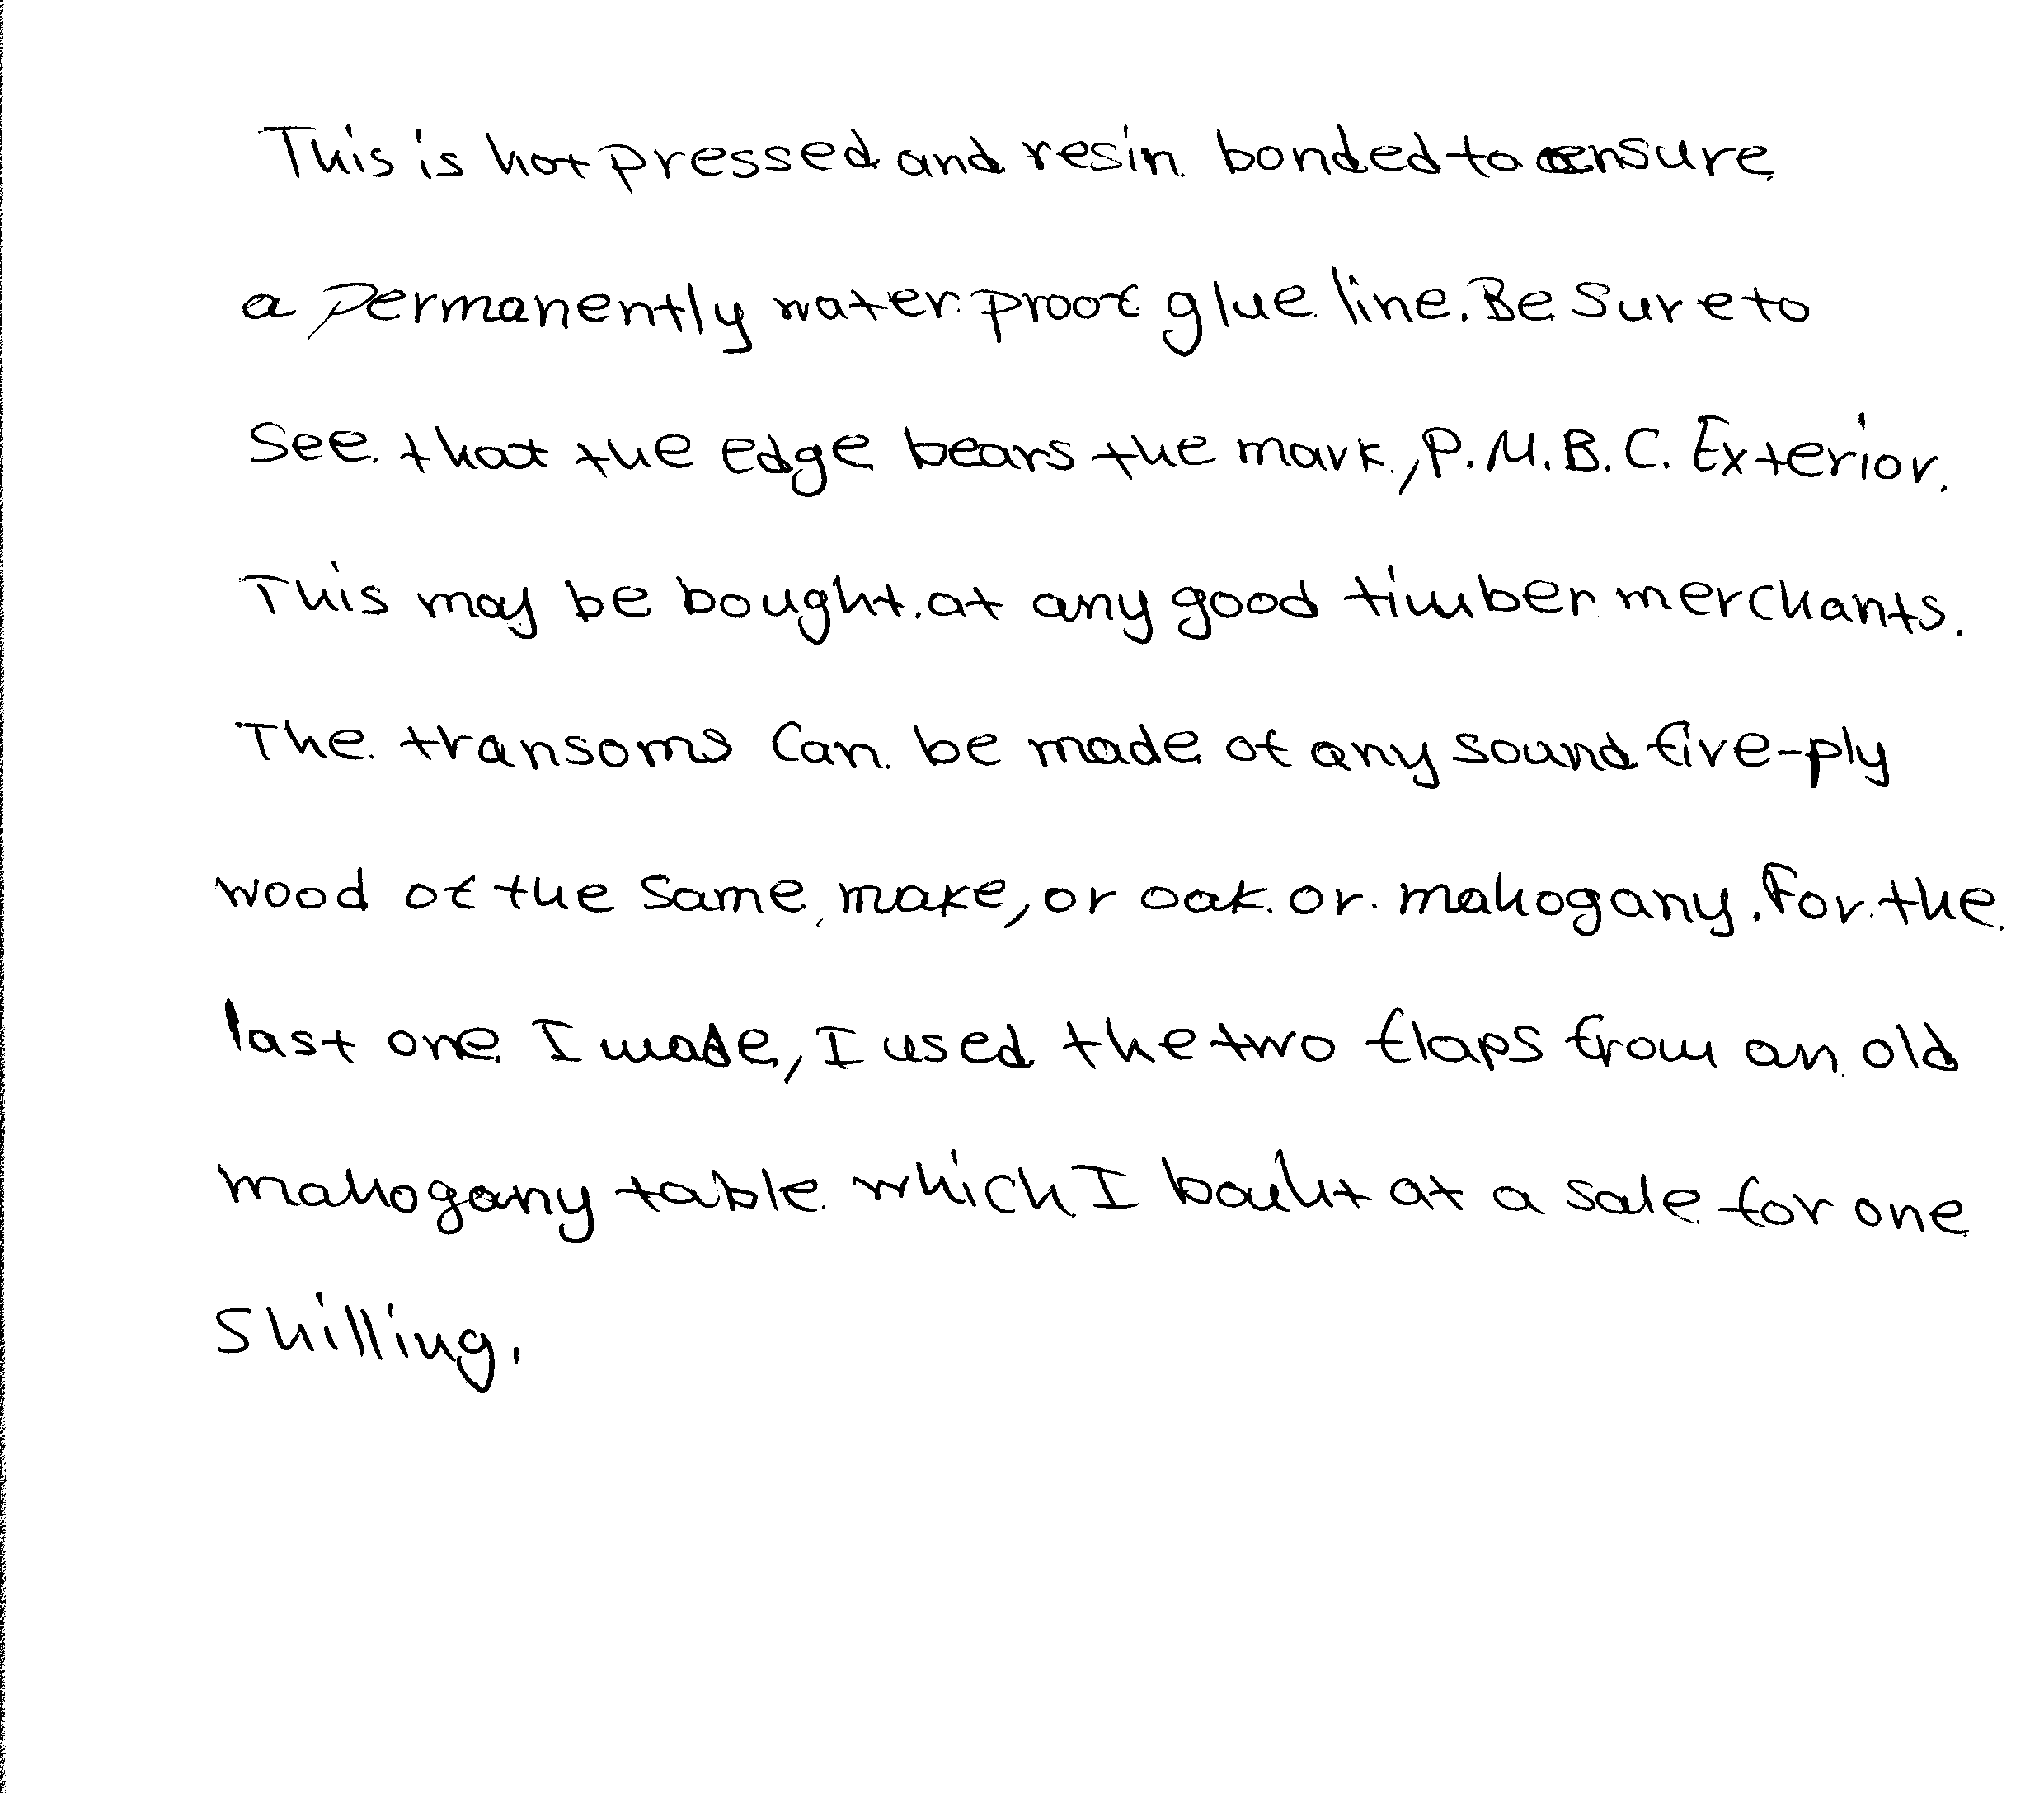 This is hot pressed and resin bonded to ensure
a permanently water proof glue line. Be sure to
see that the edge bears the mark, P.M.B.C. Exterior.
This may be bought at any good timber merchants.
The transoms can be made of any sound five-ply
wood of the same make, or oak or mahogany. For the
last one I made, I used the two flaps from an old
mahogany table which I bouht at a sale for one
shilling.